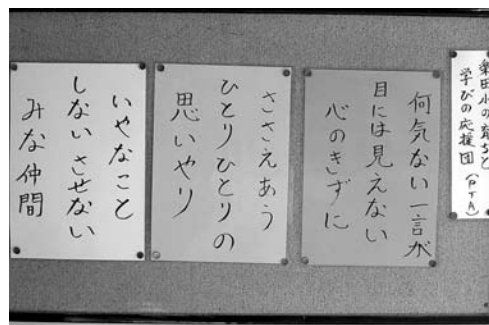 楽田小の育ちと
学びの応援団(PTA)
何気ない一言が
目には見えない
心のきずに
ささえあう
ひとりひとりの
思いやり
いやなこと
しない させない
みな仲間